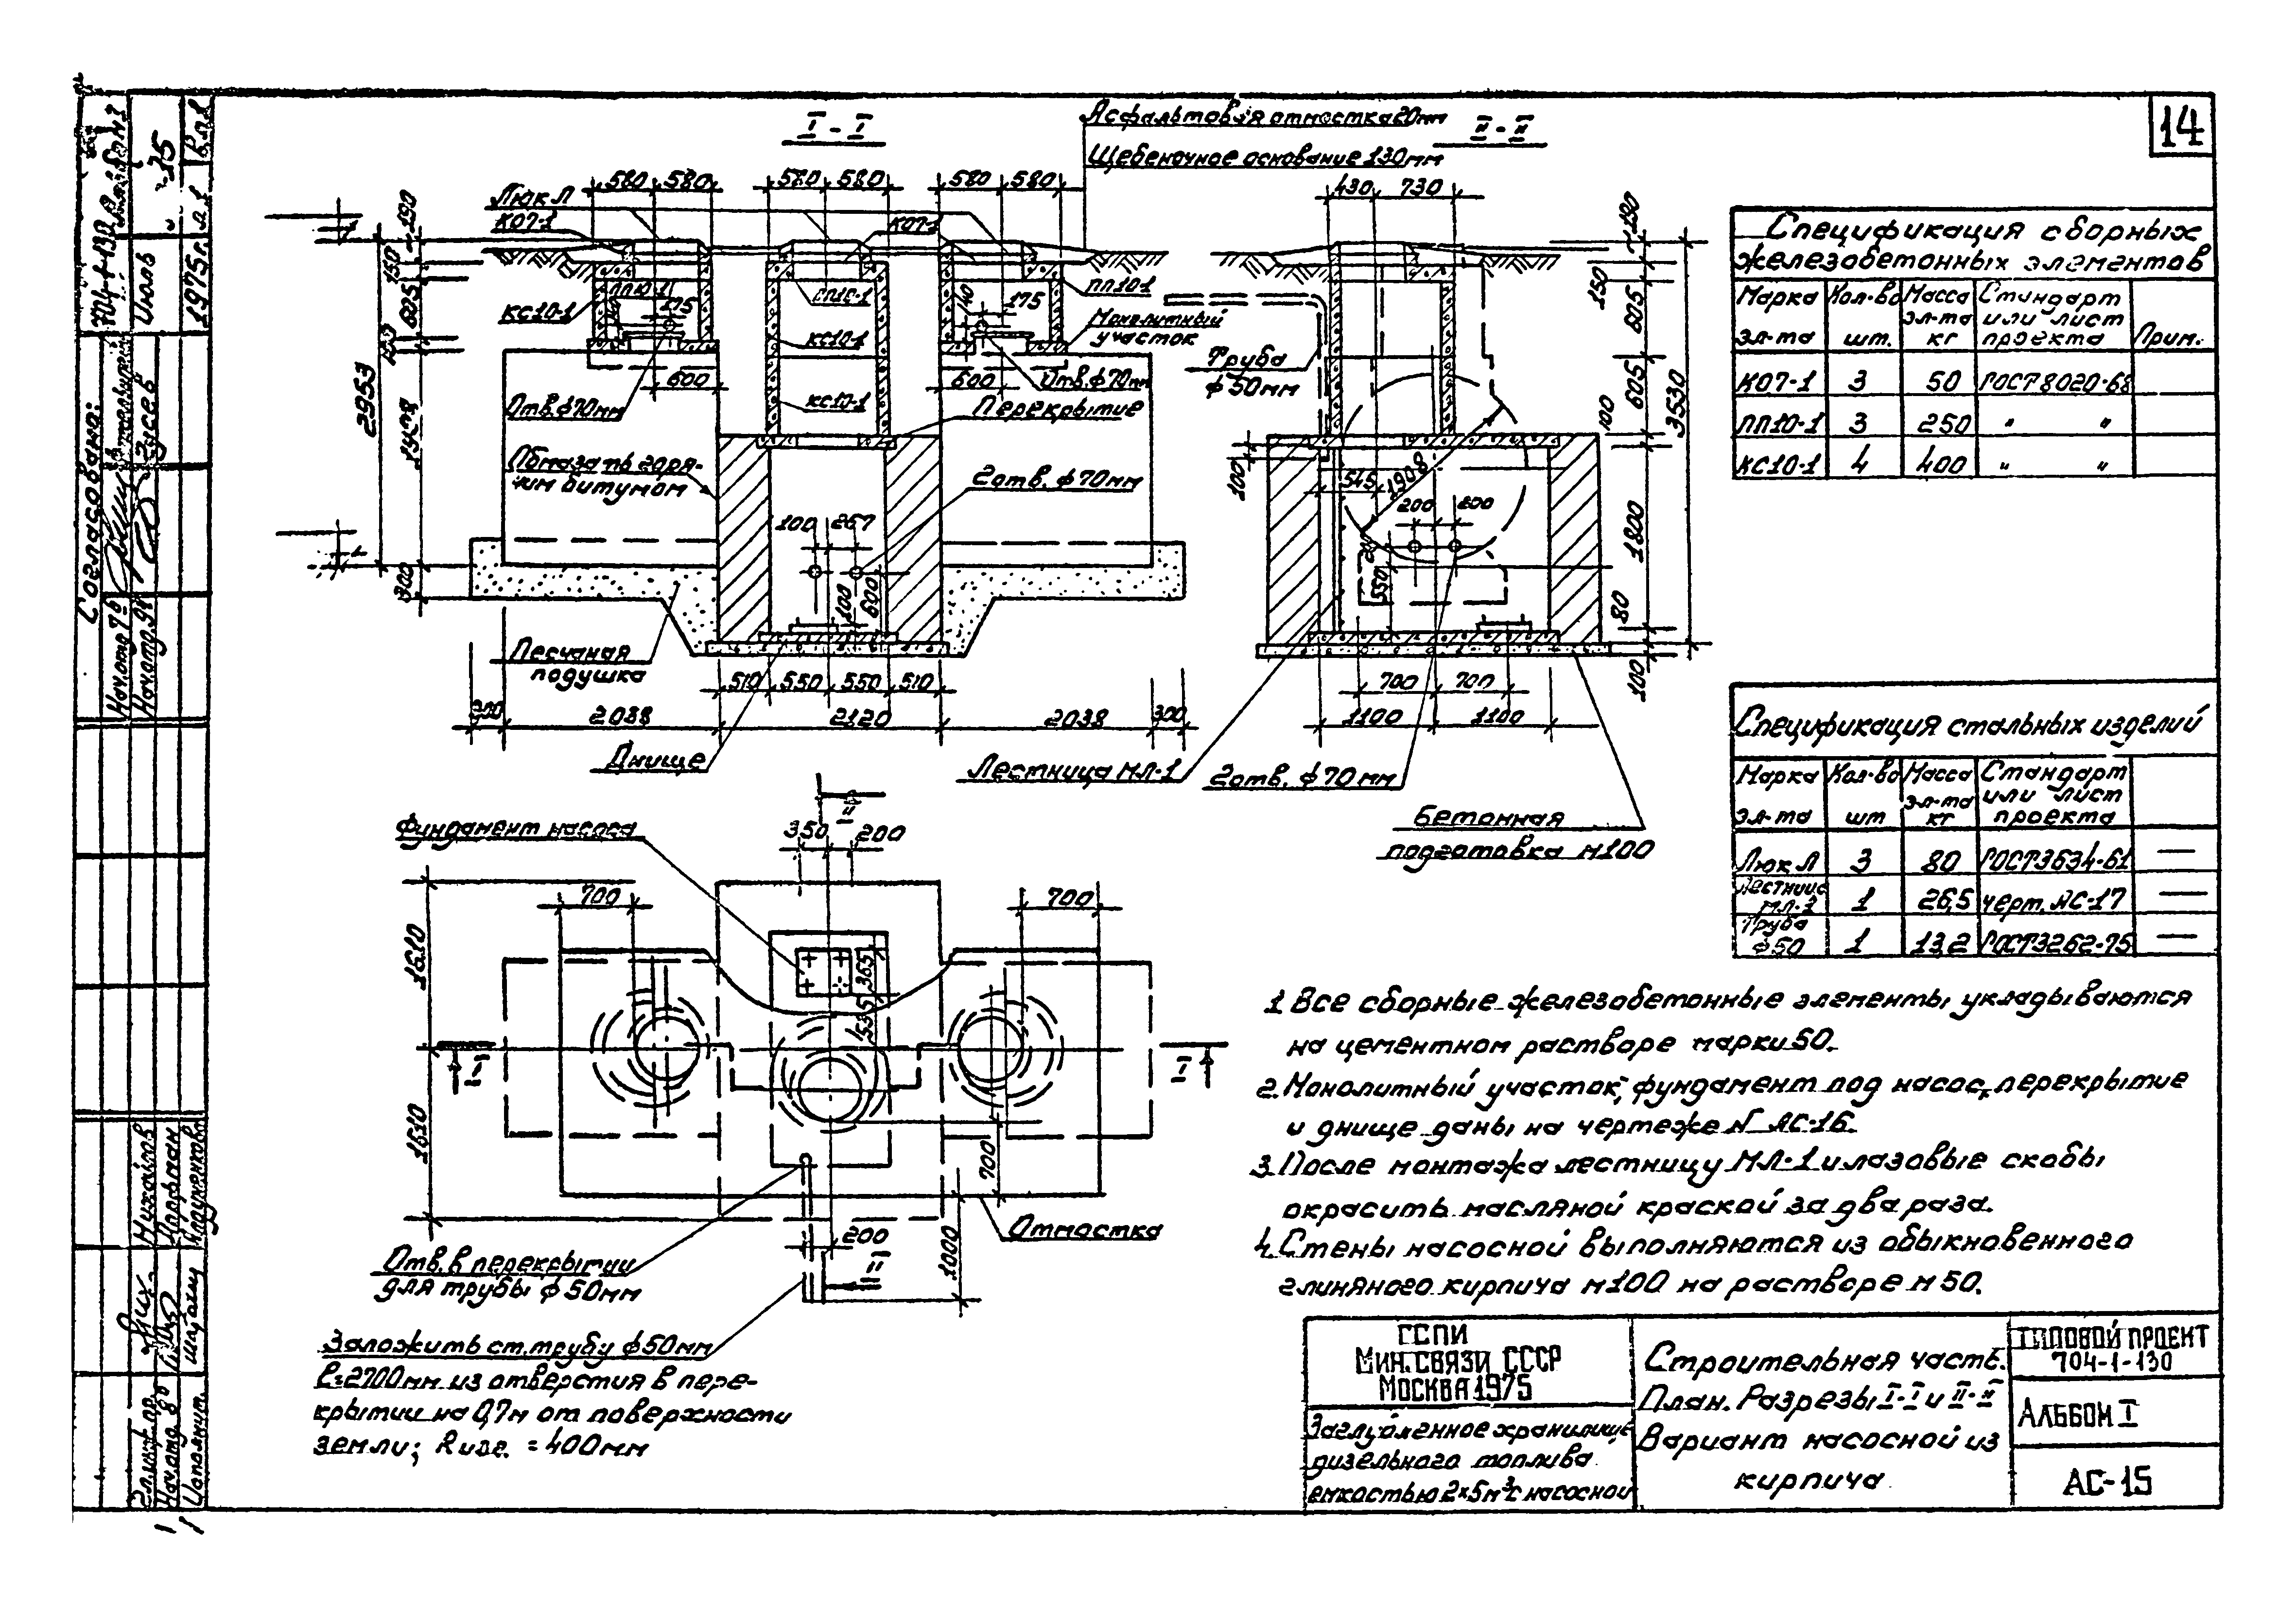 14
I - I
Асфальтовая отмостка 20мм
Щебеночное основание 130мм
II - II
580 580
580 580
580 580
430 730
Люк Л
КО7-1
КО7-1
190
150
605
2953
300
ПП10-1
175
140
175
ПП10-1
ПП10-1
КС10-1
КС10-1
КС10-1
Монолитный
участок
600
600
Отв. ф70мм
Отв. ф70мм
Перекрытие
Обмазать горя-
чим битумом
2отв. ф70мм
100 267
100
600
Песчаная
подушка
510 550 550 510
300 2038 2120 2038 300
Днище
Труба
ф50мм
190
150
605
605
100
3530
1800
80
100
100
545
1908
200 200
550
700 700
1100 1100
Лестница МЛ-1
2отв. ф70мм
Бетонная
подготовка М100
Фундамент насоса
II
350 200
700
700
1610
1610
365
535
I
I
700
1000
200
II
Отмостка
Отв. в перекрытии
для трубы ф50мм
Заложить ст. трубу ф50мм
ℓ=2700мм из отверстия в пере-
крытии на 0,7м от поверхности
земли; Rизг. = 400мм
Спецификация сборных
железобетонных элементов
Марка эл-та Кол-во шт. Масса эл-та кг Стандарт или лист проекта Прим.
КО7-1 3 50 ГОСТ 8020-68
ПП10-1 3 250 " "
КС10-1 4 400 " "
Спецификация стальных изделий
Марка эл-та Кол-во шт Масса эл-та кг Стандарт или лист проекта
Люк Л 3 80 ГОСТ3634-61 —
Лестница МЛ-1 1 26,5 черт. АС-17 —
Труба ф50 1 13,2 ГОСТ3262-75 —
1. Все сборные железобетонные элементы укладываются
на цементном растворе марки 50.
2. Монолитный участок, фундамент под насос, перекрытие
и днище даны на чертеже N АС-16.
3. После монтажа лестницу МЛ-1 и лазовые скобы
окрасить масляной краской за два раза.
4. Стены насосной выполняются из обыкновенного
глиняного кирпича М100 на растворе М50.
ГСПИ
Мин. связи СССР
Москва 1975
Заглубленное хранилище
дизельного топлива
емкостью 2×5м³ с насосной
Строительная часть.
План. Разрезы I-I и II-II
Вариант насосной из
кирпича
Типовой проект
704-1-130
Альбом I
АС-15
704-1-130
Июль
1975г.
Согласовано:
Гусев